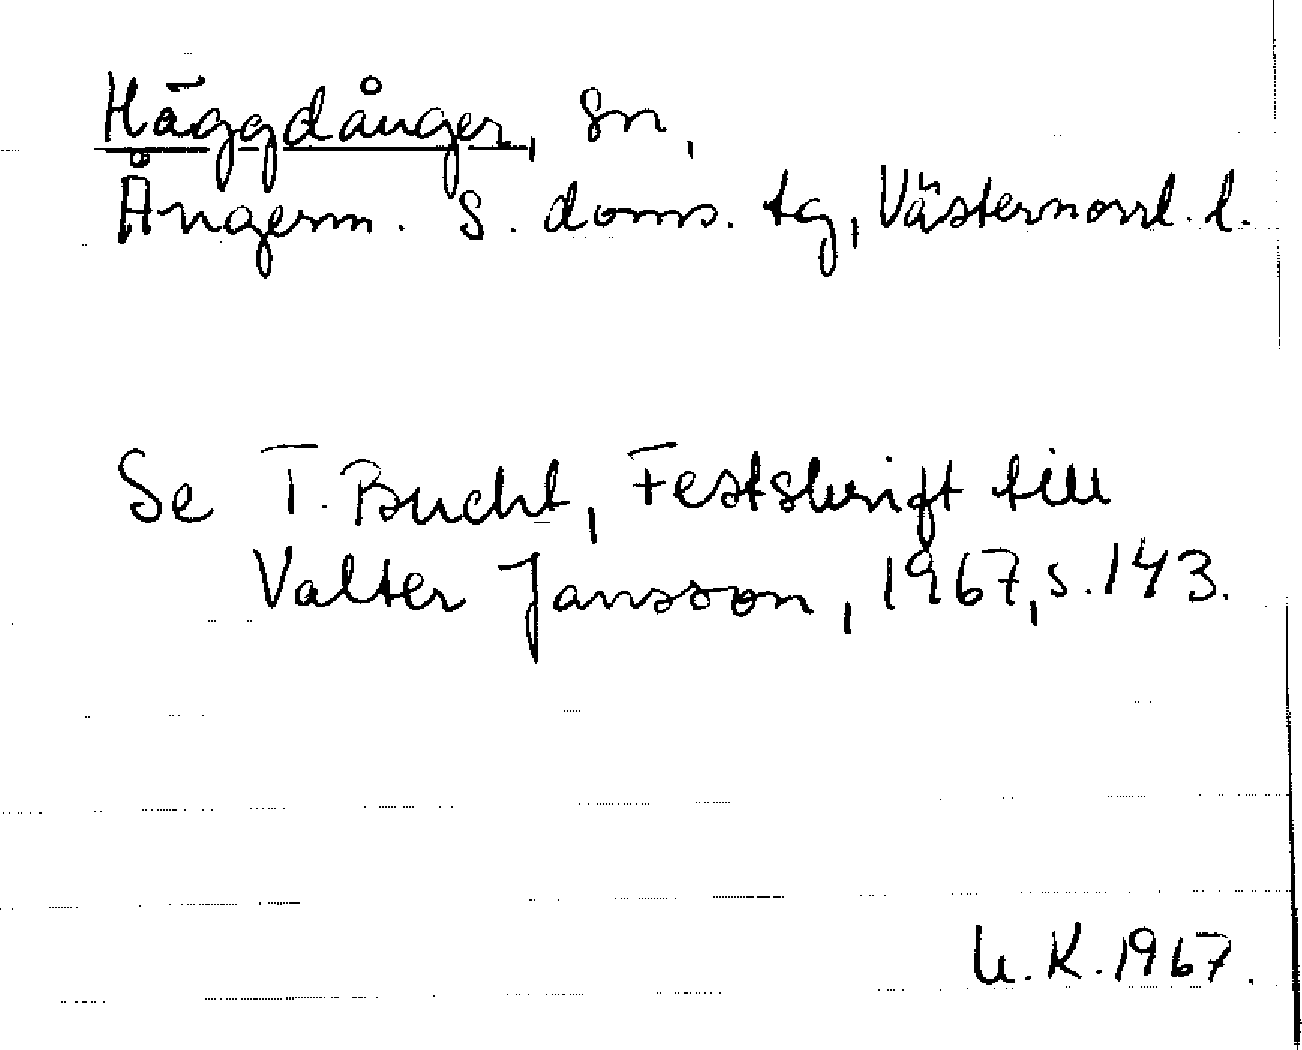 Häggdånger, sn,
Ångerm. S. doms. tg, Västernorrl. l.
Se T. Bucht, Festskrift till
Valter Jansson, 1967, s. 143.
U. K. 1967.